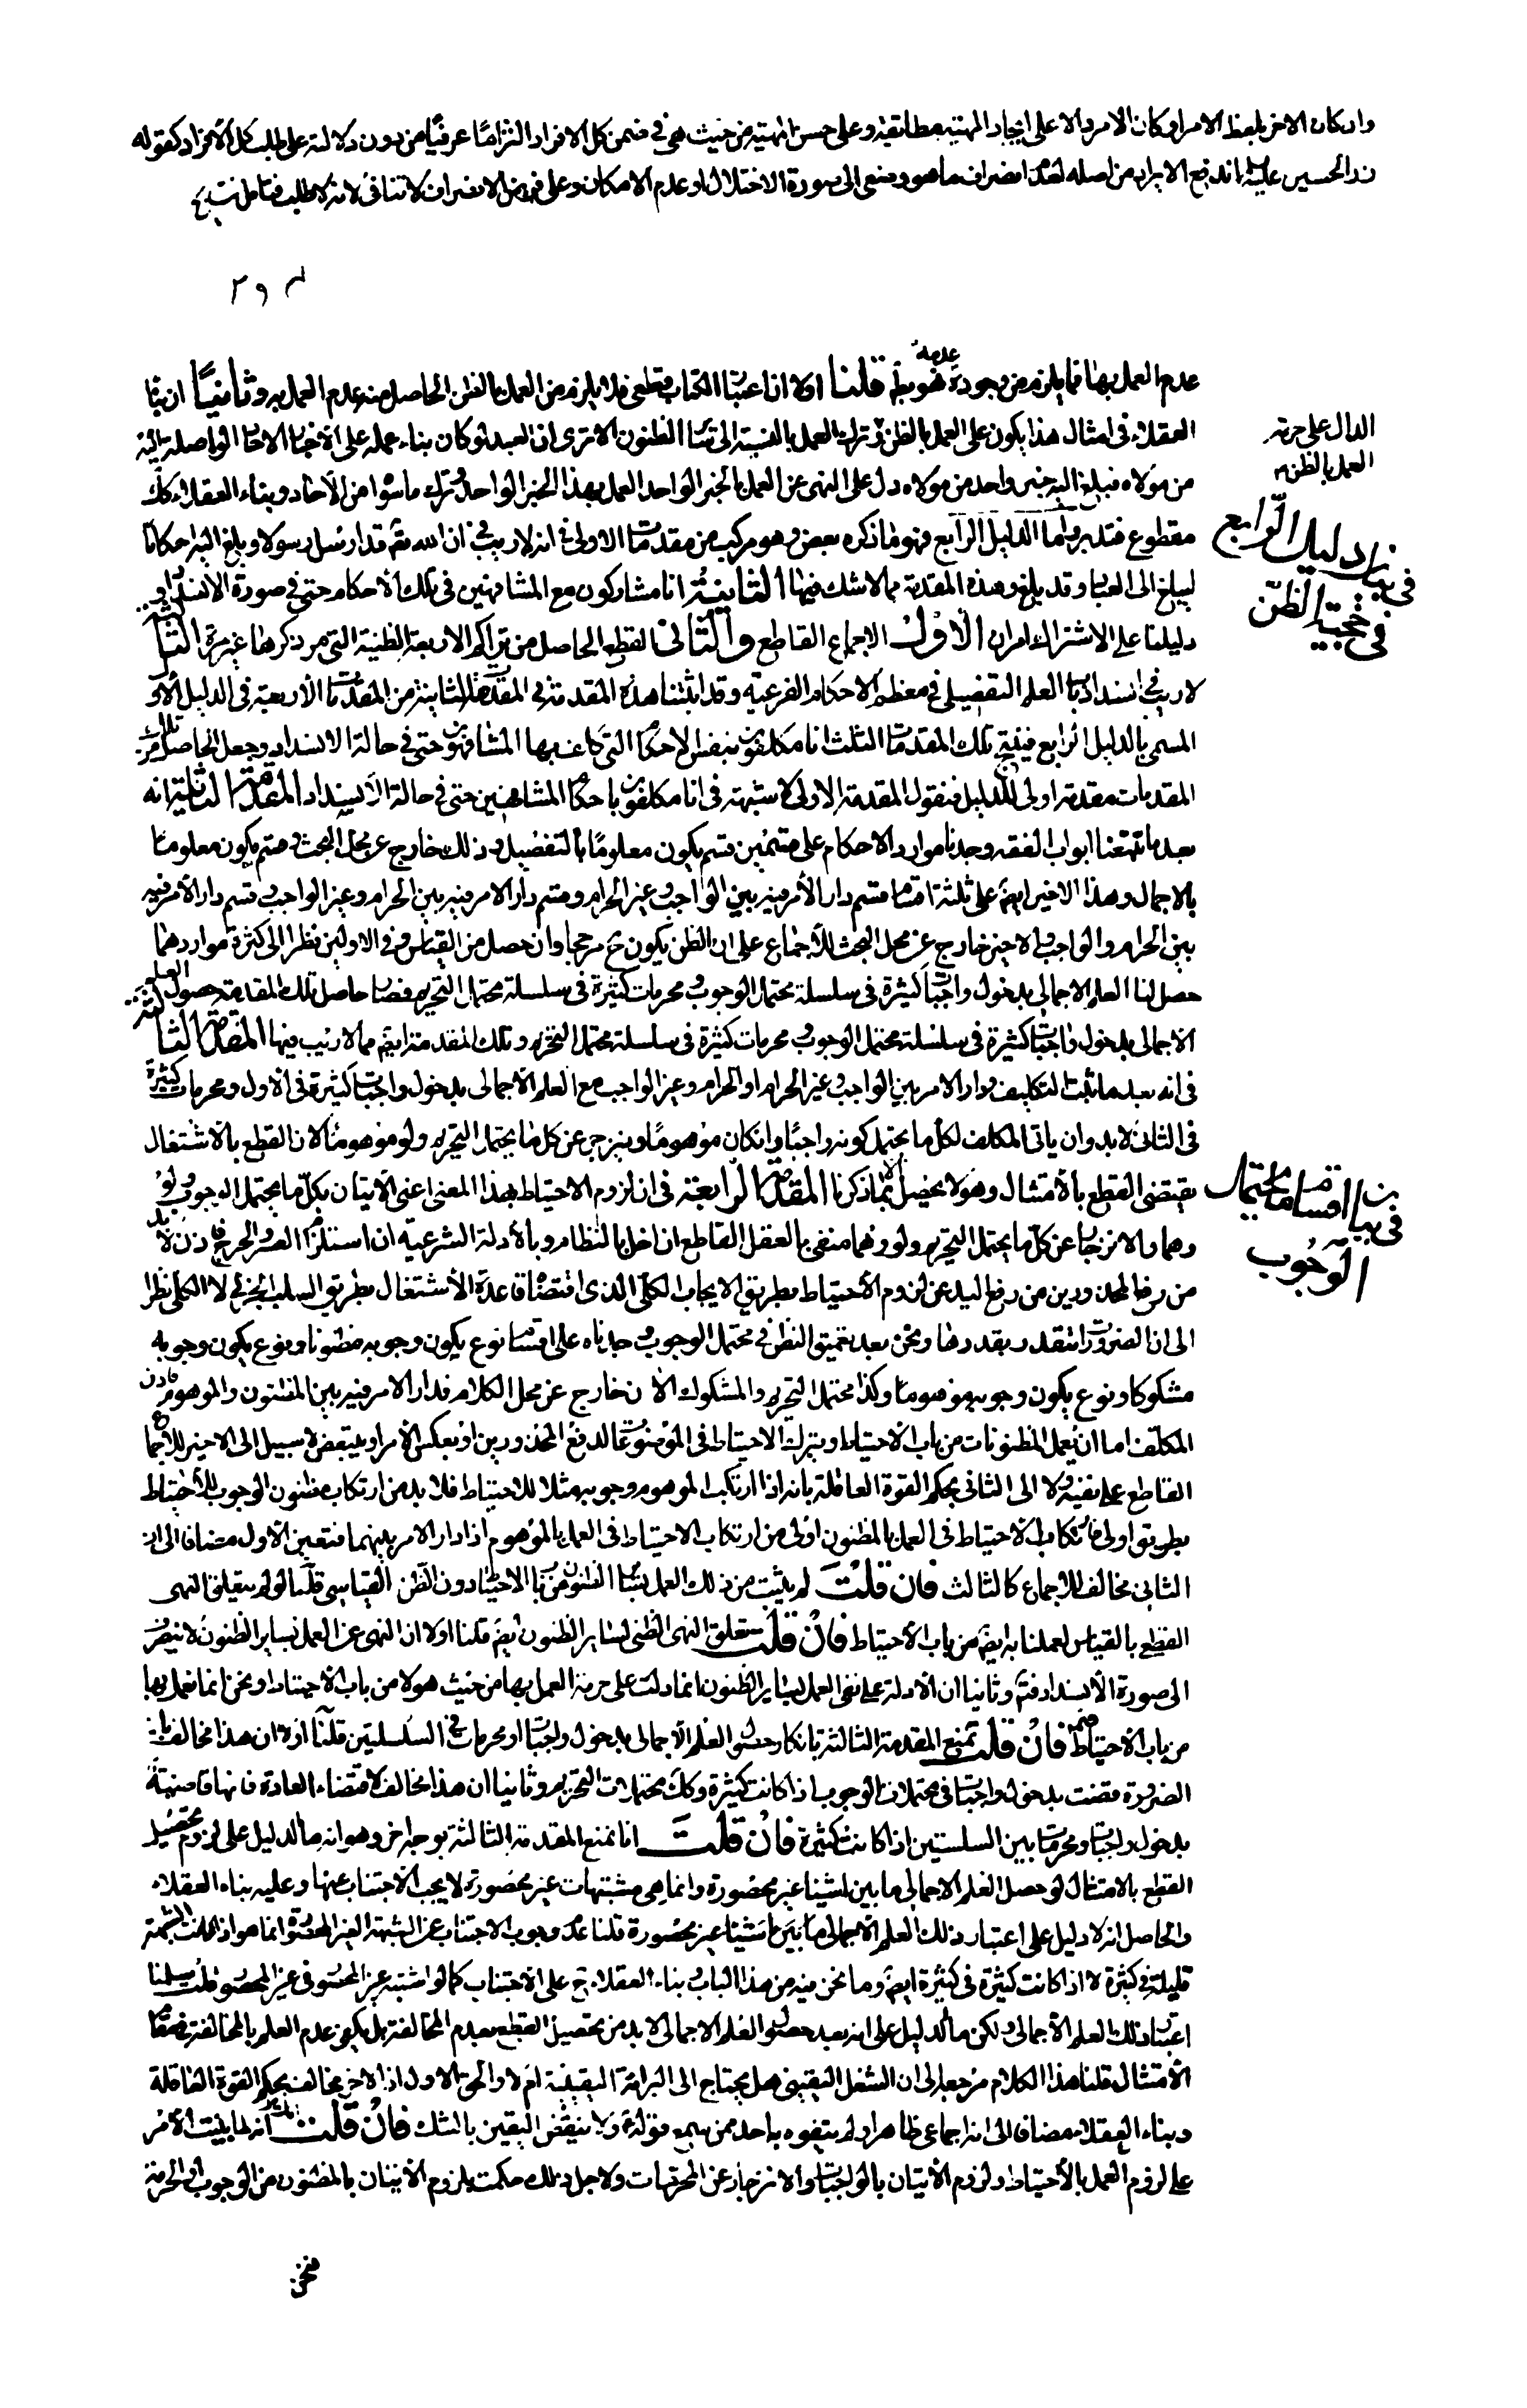 وان كان الاخر بلفظ الامر او كان الامر دالا على ايجاد المهية مطابقة وعلى حسن المهية من حيث هى فى ضمن كل الافراد التزاما عرفيا من دون دلالته على طلب كل الافراد كقوله
الحسين عليه اندفع الايراد من اصله لعدم انصراف ما هو ومنعى الى صورة الاختلال او عدم الامكان وعلى فرض الانصراف لا تنافى لانه لا طلب فتامل
عدم العمل بها فما يلزم من وجوده عدمه فهو بط قلنا اولا ان اعتبار الكتاب قطعى فلا يلزم من العمل بالظن الحاصل منه عدم العمل به وثانيا ان بناء
العقلاء فى امثال هذا يكون على العمل بالظن فى ترك العمل بالنسبة الى تلك الظنون الا ترى ان العبد لو كان بناء عمله على الاخبار الاحاد الواصلة اليه
من مولاه فبلغ اليه خبر واحد من مولاه دل على النهى عن العمل بالخبر الواحد العمل بهذا الخبر الواحد وترك ما سواه من الاحاد وبناء العقلاء كك
مقطوع فتدبر واما الدليل الرابع فهو ما ذكره بعض وهو مركب من مقدمات الاولى فى انه لا ريب فى ان الله تعم قد ارسل رسولا وبلغ اليه احكاما
ليبلغ الى العباد وقد بلغ وهذه المقدمة مما لا شك فيها الثانية انا مشاركون مع المشافهين فى تلك الاحكام حتى فى صورة الانسداد و
دليلنا على الاشتراك امران الاول الاجماع القاطع والثانى القطع الحاصل من تراكم الاربعة الظنية التى مر ذكرها غير مرة الثالثة
لا ريب فى انسداد باب العلم التفصيلى فى معظم الاحكام الفرعية وقد اثبتنا هذه المقدمة فى المقدمة الثانية من المقدمات الاربعة فى الدليل الاول
المسمى بالدليل الرابع فنتيجة تلك المقدمات الثلث انا مكلفون بنفس الاحكام التى كلف بها المشافهون حتى فى حالة الانسداد وجعل الحاصل من تلك
المقدمات مقدمة اولى للدليل فنقول المقدمة الاولى لا شبهة فى انا مكلفون باحكام المشافهين حتى فى حالة الانسداد المقدمة الثانية انه
بعد ما تتبعنا ابواب الفقه وجدنا موارد الاحكام على قسمين قسم يكون معلوما بالتفصيل وذلك خارج عن محل البحث وقسم يكون معلوما
بالاجمال وهذا الاخير ايضا على ثلثة اقسام قسم دار الامر فيه بين الواجب وغير الحرام وقسم دار الامر فيه بين الحرام وغير الواجب وقسم دار الامر فيه
بين الحرام والواجب والاخير خارج عن محل البحث للاجماع على ان الظن يكون ح مرجحا وان حصل من القياس وفى الاولين نظرا الى كثرة مواردهما
حصل لنا العلم الاجمالى بدخول واجبات كثيرة فى سلسلة محتمل الوجوب ومحرمات كثيرة فى سلسلة محتمل التحريم فصار حاصل تلك المقدمة حصول العلم
الاجمالى بدخول واجبات كثيرة فى سلسلة محتمل الوجوب ومحرمات كثيرة فى سلسلة محتمل التحريم وتلك المقدمة ايضا مما لا ريب فيها المقدمة الثالثة
فى انه بعد ما ثبت التكليف ودار الامر بين الواجب وغير الحرام او الحرام وغير الواجب مع العلم الاجمالى بدخول واجبات كثيرة فى الاول ومحرمات كثيرة
فى الثانى لا بد وان ياتى المكلف لكل ما يحتمل كونه واجبا وان كان موهوما وينزجر عن كل ما يحتمل التحريم ولو موهوما لان القطع بالاشتغال
يقتضى القطع بالامتثال وهو لا يحصل الا بما ذكرنا المقدمة الرابعة فى ان لزوم الاحتياط بهذا المعنى اعنى الاتيان بكل ما يحتمل الوجوب ولو
وهما والانزجار عن كل ما يحتمل التحريم ولو وهما منفى بالعقل القاطع ان اخل بالنظام وبالادلة الشرعية ان استلزم العسر والحرج فاذن لا بد
من رفع المحذورين من رفع اليد عن لزوم الاحتياط بطريق الايجاب الكلى الذى اقتضاه قاعدة الاشتغال بطريق السلب الجزئى لا الكلى نظرا
الى ان الضرورات تتقدر بقدرها ونحن بعد تعميق النظر فى محتمل الوجوب وجدناه على اقسام نوع يكون وجوبه مظنونا ونوع يكون وجوبه
مشكوكا ونوع يكون وجوبه موهوما وكذا محتمل التحريم والمشكوك الان خارج عن محل الكلام فدار الامر فيه بين المظنون والموهوم فاذن
المكلف اما ان يعمل المظنونات من باب الاحتياط ويترك الاحتياط فى الموهومات لدفع المحذورين او بعكس الامر او يتبعض لا سبيل الى الاخير للاجماع
القاطع على نفيه ولا الى الثانى بحكم القوة العاقلة بانه اذا ارتكب الموهوم وجوبه مثلا للاحتياط فلا بد من ارتكاب مظنون الوجوب للاحتياط
بطريق اولى فارتكاب الاحتياط فى العمل بالمظنون اولى من ارتكاب الاحتياط فى العمل بالموهوم اذا دار الامر بينهما فتعين الاول مضافا الى ان
الثانى مخالف للاجماع كالثالث فان قلت لم يثبت من ذلك العمل بتلك الظنون من باب الاحتياط دون الظن القياسى قلنا لو لم يتعلق النهى
القطع بالقياس لعملنا به ايضا من باب الاحتياط فان قلت تعلق النهى الظنى لساير الظنون ايضا قلنا اولا ان النهى عن العمل بساير الظنون لا ينصرف
الى صورة الانسداد فتم وثانيا ان الادلة على نفى العمل بساير الظنون انما دلت على حرمة العمل بها من حيث هو لا من باب الاحتياط ونحن انما نعمل بها
من باب الاحتياط فان قلت نمنع المقدمة الثالثة بانكار حصول العلم الاجمالى بدخول واجبات او محرمات فى السلسلتين قلنا اولا ان هذا مخالف
الضرورة قضت بدخول واجبات فى محتملات الوجوب اذا كانت كثيرة وكك محتملات التحريم وثانيا ان هذا مخالف لاقتضاء العادة فانها قاضية
بدخول واجبات ومحرمات بين السلستين اذا كانت كثيرة فان قلت انا نمنع المقدمة الثالثة بوجه اخر وهو انه ما الدليل على لزوم تحصيل
القطع بالامتثال لو حصل العلم الاجمالى ما بين اشياء غير محصورة وانما هى مشتبهات غير محصورة لا يجب الاجتناب عنها وعليه بناء العقلاء
والحاصل انه لا دليل على اعتبار ذلك العلم الاجمالى ما بين اشياء غير محصورة قلنا عدم وجوب الاجتناب عن الشبهة الغير المحصورة انما هو اذا كانت الشبهة
قليلة فى كثيرة لا اذا كانت كثيرة فى كثيرة ايضا وما نحن فيه من هذا الباب وبناء العقلاء ح على الاجتناب كما لو اشتبه غير المحصور فى غير المحصور فان قلت سلمنا
اعتبار ذلك العلم الاجمالى ولكن ما الدليل على انه بعد حصول العلم الاجمالى لا بد من تحصيل القطع بعدم المخالفة بل يكفى عدم العلم بالمخالفة فى مقام
الامتثال قلنا هذا الكلام مرجعه الى ان الشغل اليقينى هل يحتاج الى البرائة اليقينية ام لا والحق الاول اذ الاخر مخالف بحكم القوة العاقلة
وبناء العقلاء مضافا الى انه اجماعى ظاهرا ولم يتفوه به احد ممن يسمع قوله ولا ينقض اليقين بالشك فان قلت انه لما بنيت الامر
على لزوم العمل بالاحتياط ولزوم الاتيان بالواجبات والانزجار عن المحرمات ولاجل ذلك حكمت بلزوم الاتيان بالمظنون من الوجوب او الحرمة
فنحن
الدال على حرمة
العمل بالظن
فى بيان دليل الرابع
فى حجية الظن
فى بيان اقسام ما يحتمل
الوجوب